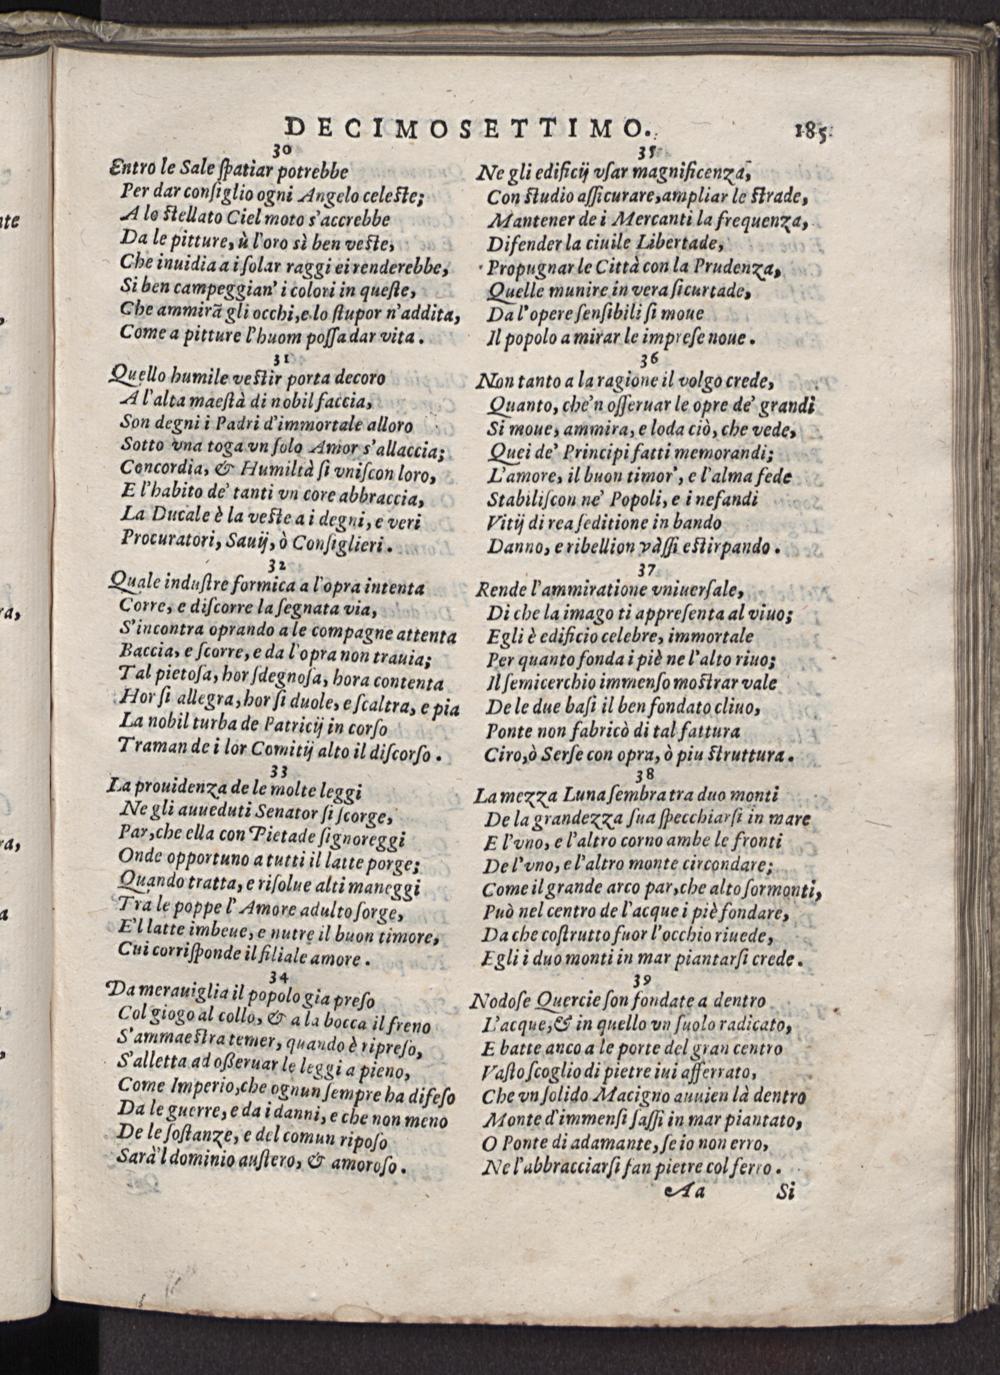 DECIMOSETTIMO. 185
30
Entro le Sale ſpatiar potrebbe
Per dar conſiglio ogni Angelo celeſte;
A lo ſtellato Ciel moto s'accrebbe
Da le pitture, ù l'oro sì ben veſte,
Che inuidia a i ſolar raggi ei renderebbe,
Si ben campeggian' i colori in queſte,
Che ammirā gli occhi, e lo ſtupor n'addita,
Come a pitture l'huom poſſa dar vita.
31
Quello humile veſtir porta decoro
A l'alta maeſtà di nobil faccia,
Son degni i Padri d'immortale alloro
Sotto vna toga vn ſolo Amor s'allaccia;
Concordia, & Humiltà ſi vniſcon loro,
E l'habito de' tanti vn core abbraccia,
La Ducale è la veſte a i degni, e veri
Procuratori, Sauij, ò Conſiglieri.
32
Quale induſtre formica a l'opra intenta
Corre, e diſcorre la ſegnata via,
S'incontra oprando a le compagne attenta
Baccia, e ſcorre, e da l'opra non trauia;
Tal pietoſa, hor ſdegnoſa, hora contenta
Hor ſi allegra, hor ſi duole, e ſcaltra, e pia
La nobil turba de Patricij in corſo
Traman de i lor Comitij alto il diſcorſo.
33
La prouidenza de le molte leggi
Ne gli auueduti Senator ſi ſcorge,
Par, che ella con Pietade ſignoreggi
Onde opportuno a tutti il latte porge;
Quando tratta, e riſolue alti maneggi
Tra le poppe l'Amore adulto ſorge,
E'l latte imbeue, e nutre il buon timore,
Cui corriſponde il filiale amore.
34
Da merauiglia il popolo gia preſo
Col giogo al collo, & a la bocca il freno
S'ammaeſtra temer, quando è ripreſo,
S'alletta ad oſſeruar le leggi a pieno,
Come Imperio, che ognun ſempre ha difeſo
Da le guerre, e da i danni, e che non meno
De le ſoſtanze, e del comun ripoſo
Sarà'l dominio auſtero, & amoroſo.
35
Ne gli edificij vſar magnificenza,
Con ſtudio aſſicurare, ampliar le ſtrade,
Mantener de i Mercanti la frequenza,
Difender la ciuile Libertade,
Propugnar le Città con la Prudenza,
Quelle munire in vera ſicurtade,
Da l'opere ſenſibili ſi moue
Il popolo a mirar le impreſe noue.
36
Non tanto a la ragione il volgo crede,
Quanto, che'n oſſeruar le opre de' grandi
Si moue, ammira, e loda ciò, che vede,
Quei de' Principi fatti memorandi;
L'amore, il buon timor', e l'alma fede
Stabiliſcon ne' Popoli, e i nefandi
Vitij di rea ſeditione in bando
Danno, e ribellion vàſſi eſtirpando.
37
Rende l'ammiratione vniuerſale,
Di che la imago ti appreſenta al viuo;
Egli è edificio celebre, immortale
Per quanto fonda i piè ne l'alto riuo;
Il ſemicerchio immenſo moſtrar vale
De le due baſi il ben fondato cliuo,
Ponte non fabricò di tal fattura
Ciro, ò Serſe con opra, ò piu ſtruttura.
38
La mezza Luna ſembra tra duo monti
De la grandezza ſua ſpecchiarſi in mare
E l'vno, e l'altro corno ambe le fronti
De l'vno, e l'altro monte circondare;
Come il grande arco par, che alto ſormonti,
Può nel centro de l'acque i piè fondare,
Da che coſtrutto fuor l'occhio riuede,
Egli i duo monti in mar piantarſi crede.
39
Nodoſe Quercie ſon fondate a dentro
L'acque, & in quello vn ſuolo radicato,
E batte anco a le porte del gran centro
Vaſto ſcoglio di pietre iui afferrato,
Che vn ſolido Macigno auuien là dentro
Monte d'immenſi ſaſſi in mar piantato,
O Ponte di adamante, ſe io non erro,
Ne l'abbracciarſi fan pietre col ferro.
Aa Si